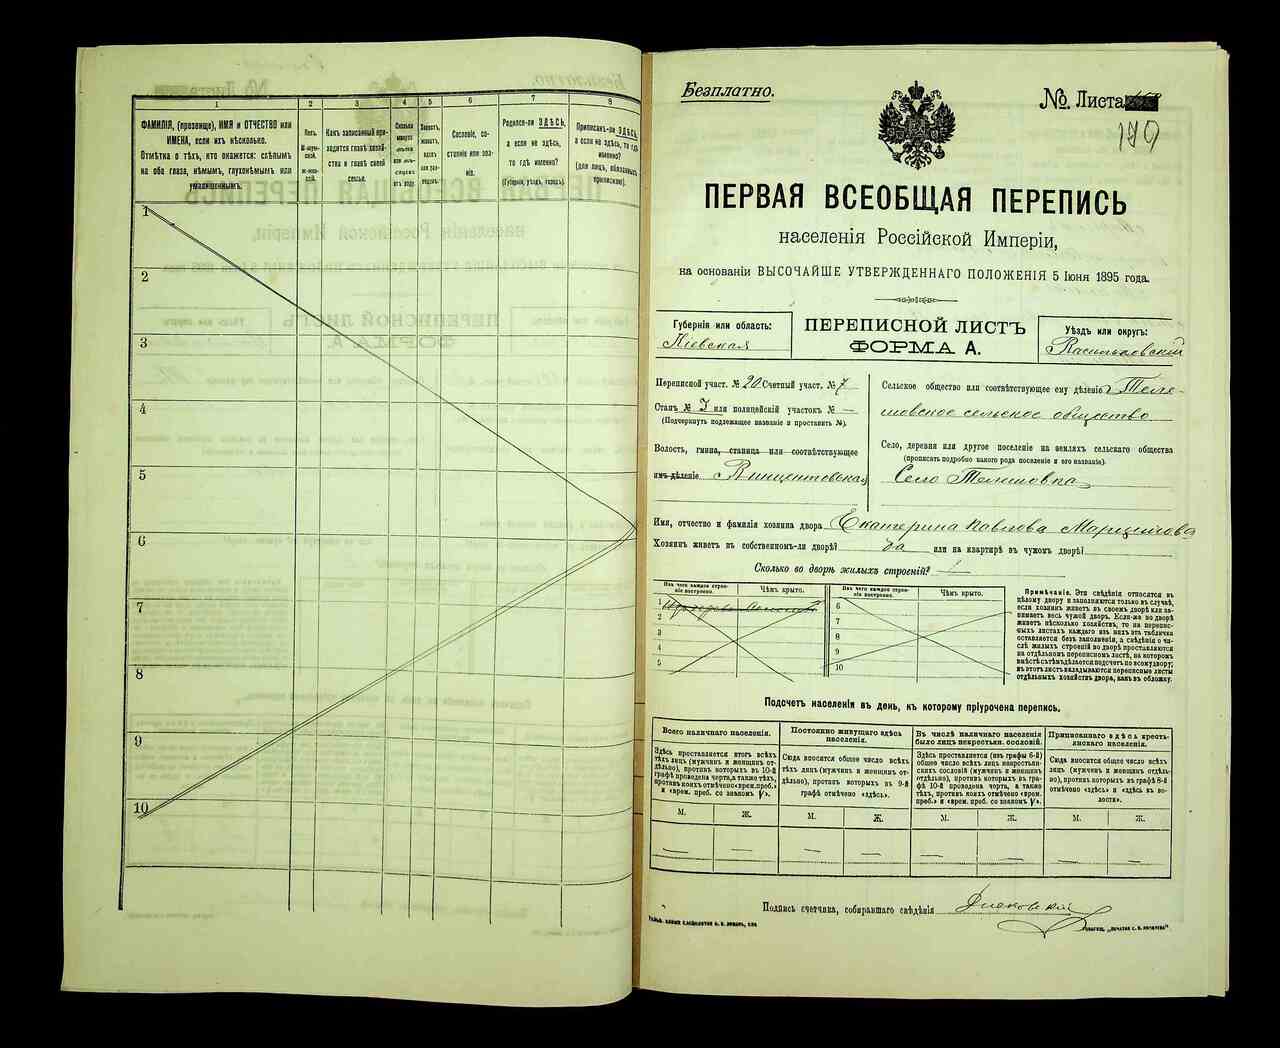 1
2
3
4
5
6
7
8
ФАМИЛІЯ, (прозвище), ИМЯ и ОТЧЕСТВО или
ИМЕНА, если ихъ нѣсколько.
Отмѣтка о тѣхъ, кто окажется: слѣпымъ
на оба глаза, нѣмымъ, глухонѣмымъ или
умалишеннымъ.
Полъ.
Какъ записанный при-
ходится главѣ хозяй-
ства и главѣ своей
семьи.
Сколько
минуло
Сословіе, со-
стояніе или зва-
ніе.
Родился-ли ЗДѢСЬ,
а если не здѣсь,
то гдѣ именно?
(Губернія, уѣздъ, городъ).
Приписанъ-ли ЗДѢСЬ,
а если не здѣсь, то гдѣ
именно?
(для лицъ, обязанныхъ
припискою).
1
2
3
4
5
6
7
8
9
10
Безплатно.
№ Листа
179
ПЕРВАЯ ВСЕОБЩАЯ ПЕРЕПИСЬ
населенія Россійской Имперіи,
на основаніи ВЫСОЧАЙШЕ УТВЕРЖДЕННАГО ПОЛОЖЕНІЯ 5 Іюня 1895 года.
Губернія или область:
Кіевская
ПЕРЕПИСНОЙ ЛИСТЪ
ФОРМА А.
Уѣздъ или округъ:
Васильковскій
Переписной участ. № 20 Счетный участ. № 7
Станъ № 3 или полицейскій участокъ № —
(Подчеркнуть подлежащее названіе и проставить №).
Волость, гмина, станица или соотвѣтствующее
имъ дѣленіе Винцентовская
Сельское общество или соотвѣтствующее ему дѣленіе Теле-
шовское сельское общество
Село, деревня или другое поселеніе на земляхъ сельскаго общества
(прописать подробно какого рода поселеніе и его названіе).
Село Телешовка
Имя, отчество и фамилія хозяина двора Екатерина Павлова
Хозяинъ живетъ въ собственномъ-ли дворѣ? да или на квартирѣ въ чужомъ дворѣ?
Сколько во дворѣ жилыхъ строеній? 1
Изъ чего каждое строе-
ніе построено.
Чѣмъ крыто.
Изъ чего каждое строе-
ніе построено.
Чѣмъ крыто.
1
2
3
4
5
6
7
8
9
10
Примѣчаніе. Эти свѣдѣнія относятся къ
цѣлому двору и заполняются только въ случаѣ,
если хозяинъ живетъ въ своемъ дворѣ или за-
нимаетъ весь чужой дворъ. Если-же во дворѣ
живетъ нѣсколько хозяйствъ, то на перепис-
ныхъ листахъ каждаго изъ нихъ эта табличка
оставляется безъ заполненія, а свѣдѣнія о чи-
слѣ жилыхъ строеній во дворѣ проставляются
на отдѣльномъ переписномъ листѣ, на которомъ
вмѣстѣ съ тѣмъ дѣлается подсчетъ по всему двору;
въ этотъ листъ вкладываются переписные листы
отдѣльныхъ хозяйствъ двора, какъ въ обложку.
Подсчетъ населенія въ день, къ которому пріурочена перепись.
Всего наличнаго населенія.
Здѣсь проставляется итогъ всѣхъ
тѣхъ лицъ (мужчинъ и женщинъ от-
дѣльно), противъ которыхъ въ 10-й
графѣ проведена черта, а также тѣхъ,
противъ коихъ отмѣчено «врем. преб.»
и «врем. преб. со знакомъ V».
Постоянно живущаго здѣсь
населенія.
Сюда вносится общее число всѣхъ
тѣхъ лицъ (мужчинъ и женщинъ от-
дѣльно), противъ которыхъ въ 9-й
графѣ отмѣчено «здѣсь».
Въ числѣ наличнаго населенія
было лицъ некрестьян. сословій.
Здѣсь проставляется (изъ графы 6-й)
общее число всѣхъ лицъ некрестьян-
скихъ сословій (мужчинъ и женщинъ
отдѣльно), противъ которыхъ въ гра-
фѣ 10-й проведена черта, а также
тѣхъ, противъ коихъ отмѣчено «врем.
преб.» и «врем. преб. со знакомъ V».
Приписаннаго здѣсь кресть-
янскаго населенія.
Сюда вносится общее число всѣхъ
лицъ (мужчинъ и женщинъ отдѣль-
но), противъ которыхъ въ графѣ 8-й
отмѣчено «здѣсь» и «здѣсь въ во-
лости».
М.
Ж.
М.
Ж.
М.
Ж.
М.
Ж.
— — — — — — — —
Подпись счетчика, собиравшаго свѣдѣнія